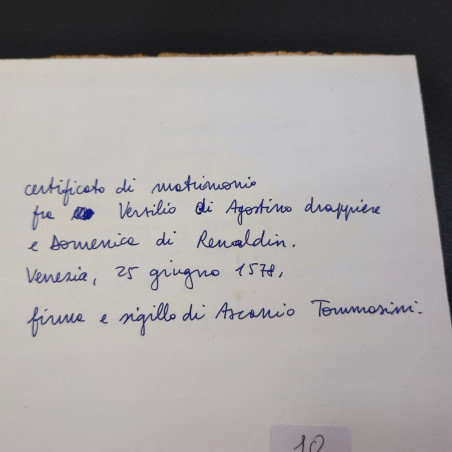 certificato di matrimonio
fra Versilio di Agostino drappiere
e Domenica di Renaldin.
Venezia, 25 giugno 1578,
firma e sigillo di Ascanio Tommasini.
10